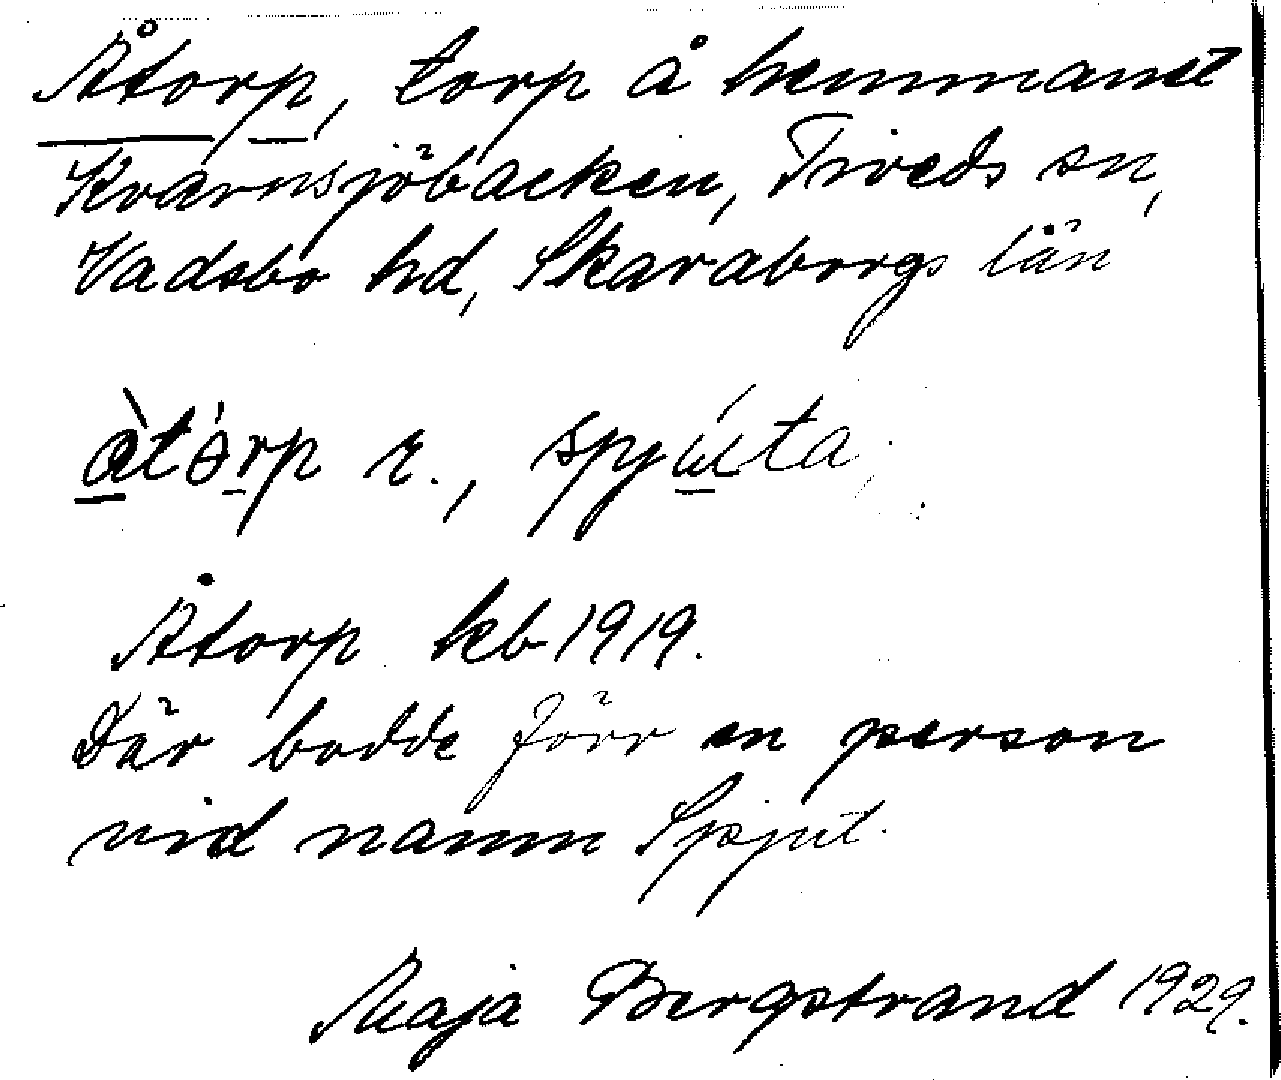 Åtorp, torp å hemmanet
Kvarnsjöbacken, Tiveds sn,
Vadsbo hd, Skaraborgs län
àtórp l., spju̲̍ta,
Åtorp kb 1919.
Där bodde förr en person
vid namn Spjut.
Maja Bergstrand 1929.